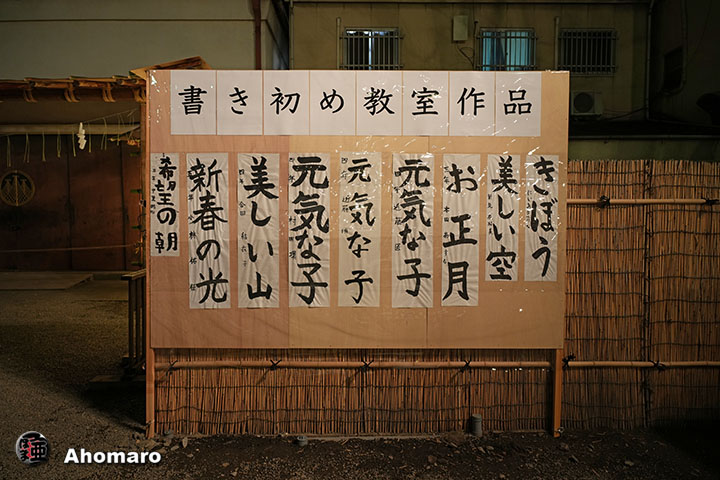 書き初め教室作品
きぼう
美しい空
お正月
元気な子
元気な子
元気な子
美しい山
新春の光
希望の朝
Ahomaro